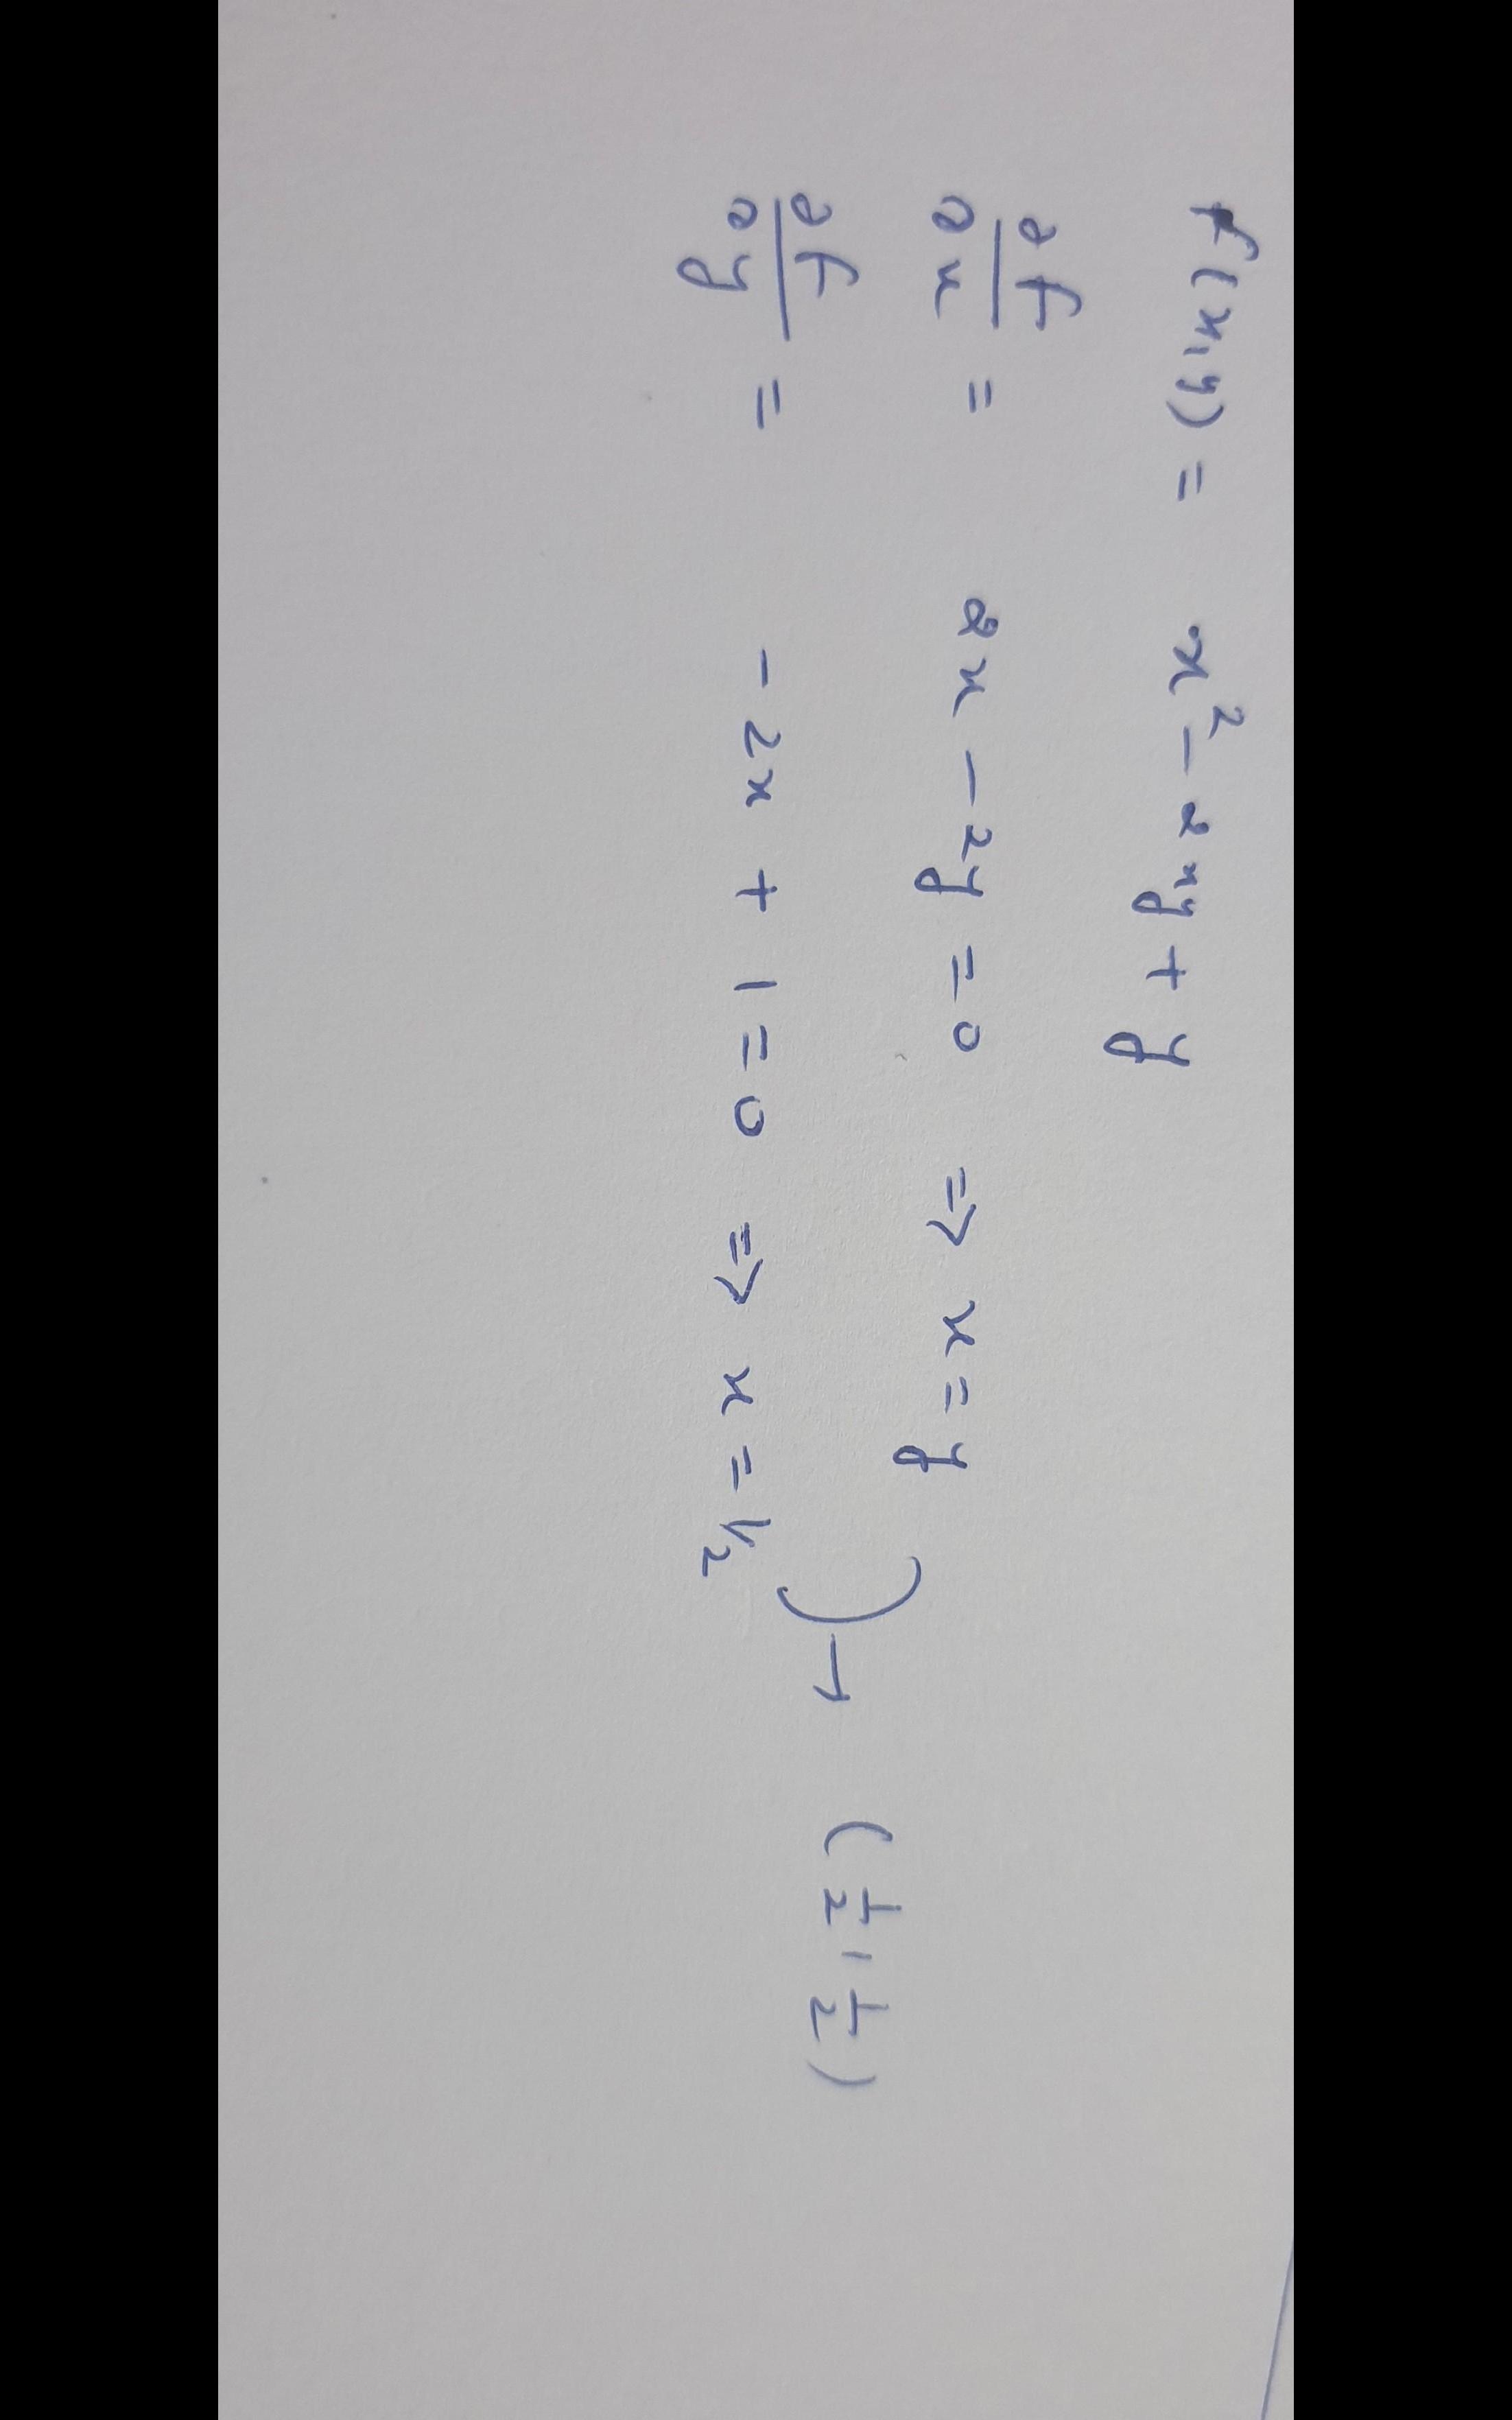 f(x,y) = x² - 2xy + y
∂f/∂x = 2x - 2y = 0 => x = y
∂f/∂y = - 2x + 1 = 0 => x = 1/2 → (1/2, 1/2)